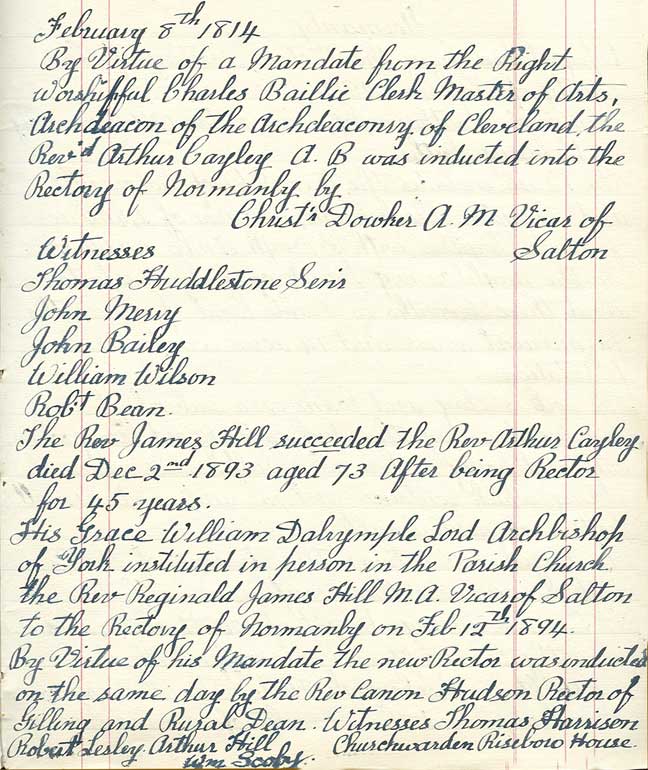 February 8th 1814
By Virtue of a Mandate from the Right
Worshipful Charles Baillie Clerk Master of Arts,
Archdeacon of the Archdeaconry of Cleveland the
Rev'd Arthur Cayley A. B was inducted into the
Rectory of Normanby by
Christ'r Dowker A. M Vicar of
Salton
Witnesses
Thomas Huddlestone Sen'r
John Merry
John Bailey
William Wilson
Robt Bean.
The Rev James Hill succeeded the Rev Arthur Cayley
died Dec 2nd 1893 aged 73 After being Rector
for 45 years.
His Grace William Dalrymple Lord Archbishop
of York instituted in person in the Parish Church
the Rev Reginald James Hill M.A. Vicar of Salton
to the Rectory of Normanby on Feb 12th 1894.
By Virtue of his Mandate the new Rector was inducted
on the same day by the Rev Canon Hudson Rector of
Gilling and Rural Dean. Witnesses Thomas Harrison
Robert Lesley. Arthur Hill Churchwarden Riseboro House.
Wm Scoby.